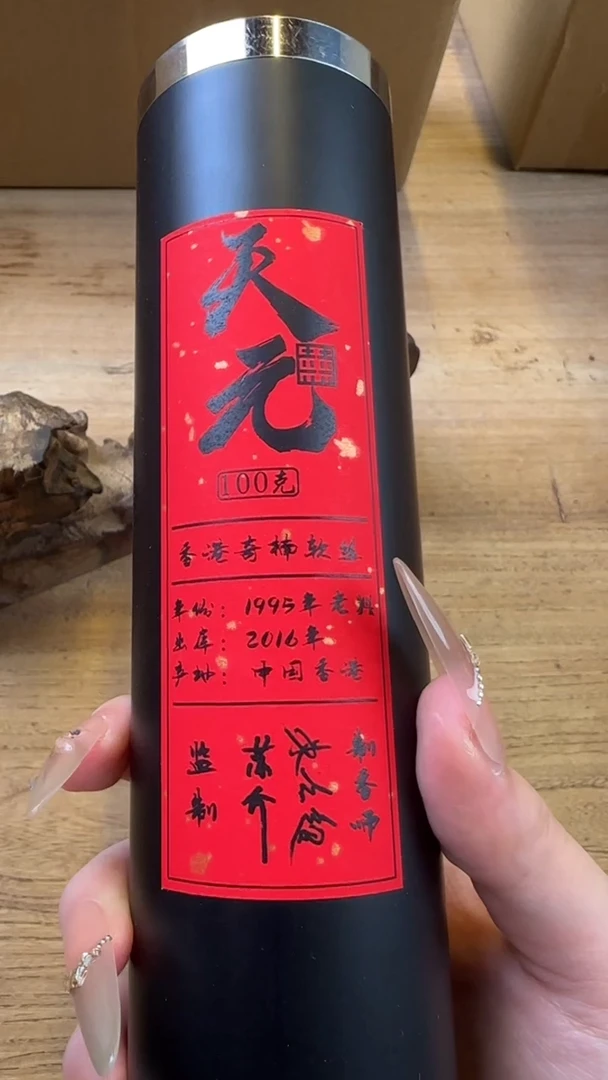 天元
100克
香港奇楠软丝
年份：1995年老料
出库：2016年
产地：中国香港
制香师
监制